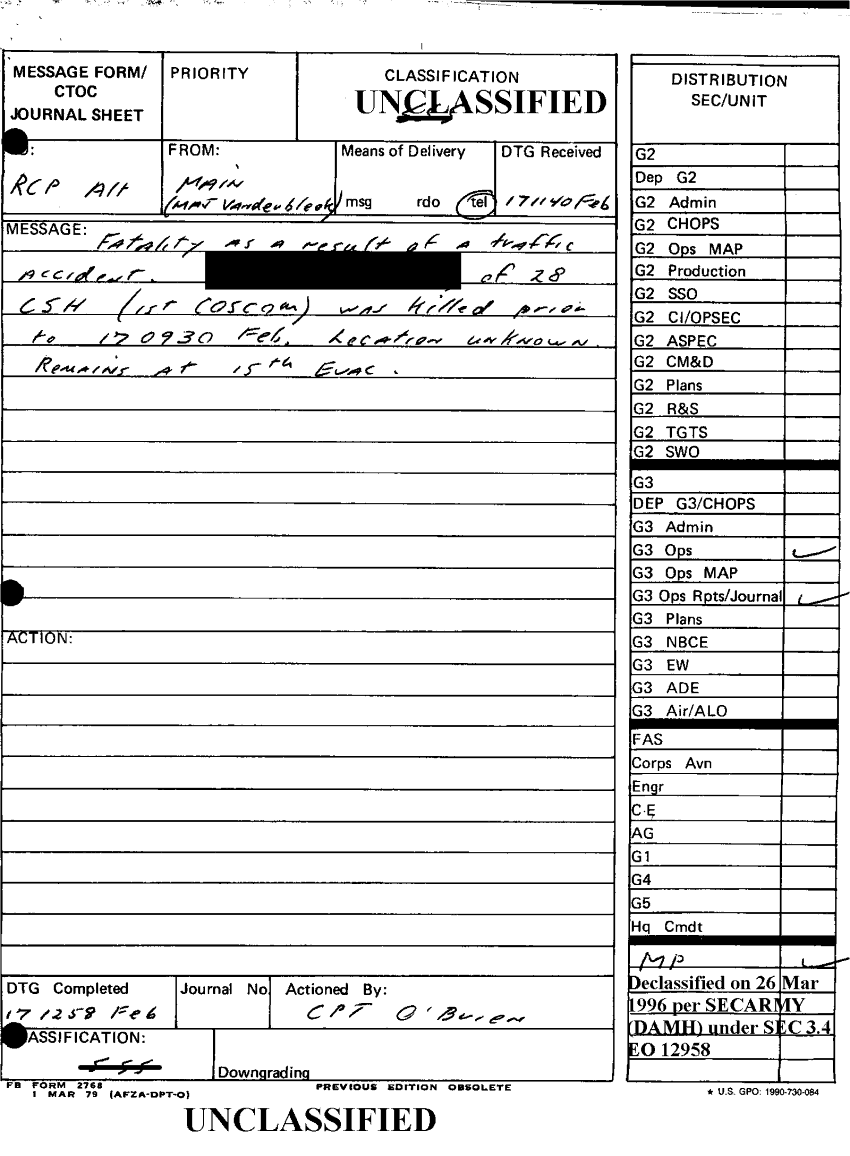 MESSAGE FORM/
CTOC
JOURNAL SHEET
PRIORITY
CLASSIFICATION
UNCLASSIFIED
FROM:
MAIN
(MAJ Vanderbleek)
RCP Alt
Means of Delivery
msg rdo tel
DTG Received
171140 Feb
MESSAGE:
Fatality as a result of a traffic
accident. of 28
CSH (1st COSCOM) was killed prior
to 170930 Feb. Location unknown.
Remains at 15th Evac.
ACTION:
DTG Completed
171258 Feb
Journal No
Actioned By:
CPT O'Brien
ASSIFICATION:
Downgrading
FB FORM 2768
1 MAR 79 (AFZA-DPT-O)
PREVIOUS EDITION OBSOLETE
UNCLASSIFIED
DISTRIBUTION
SEC/UNIT
G2
Dep G2
G2 Admin
G2 CHOPS
G2 Ops MAP
G2 Production
G2 SSO
G2 CI/OPSEC
G2 ASPEC
G2 CM&D
G2 Plans
G2 R&S
G2 TGTS
G2 SWO
G3
DEP G3/CHOPS
G3 Admin
G3 Ops
G3 Ops MAP
G3 Ops Rpts/Journal
G3 Plans
G3 NBCE
G3 EW
G3 ADE
G3 Air/ALO
FAS
Corps Avn
Engr
C-E
AG
G1
G4
G5
Hq Cmdt
MP
Declassified on 26 Mar
1996 per SECARMY
(DAMH) under SEC 3.4
EO 12958
★ U.S. GPO: 1990-730-084